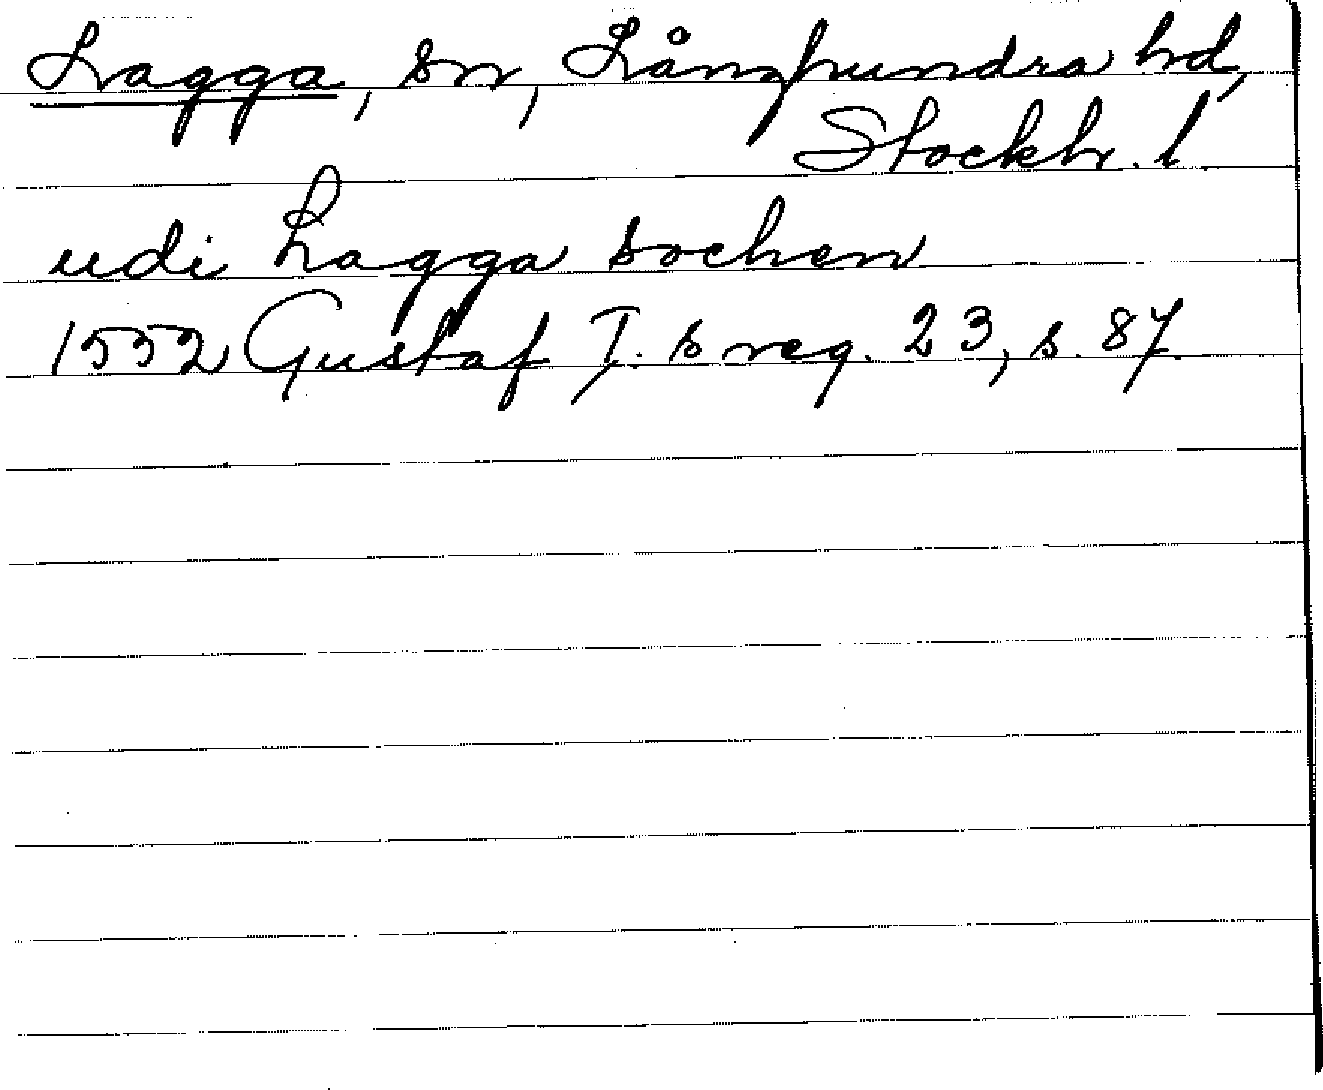 Lagga, sn, Långhundra hd,
Stockh. l
udi Lagga sochen
1552 Gustaf I. s reg. 23, s. 87